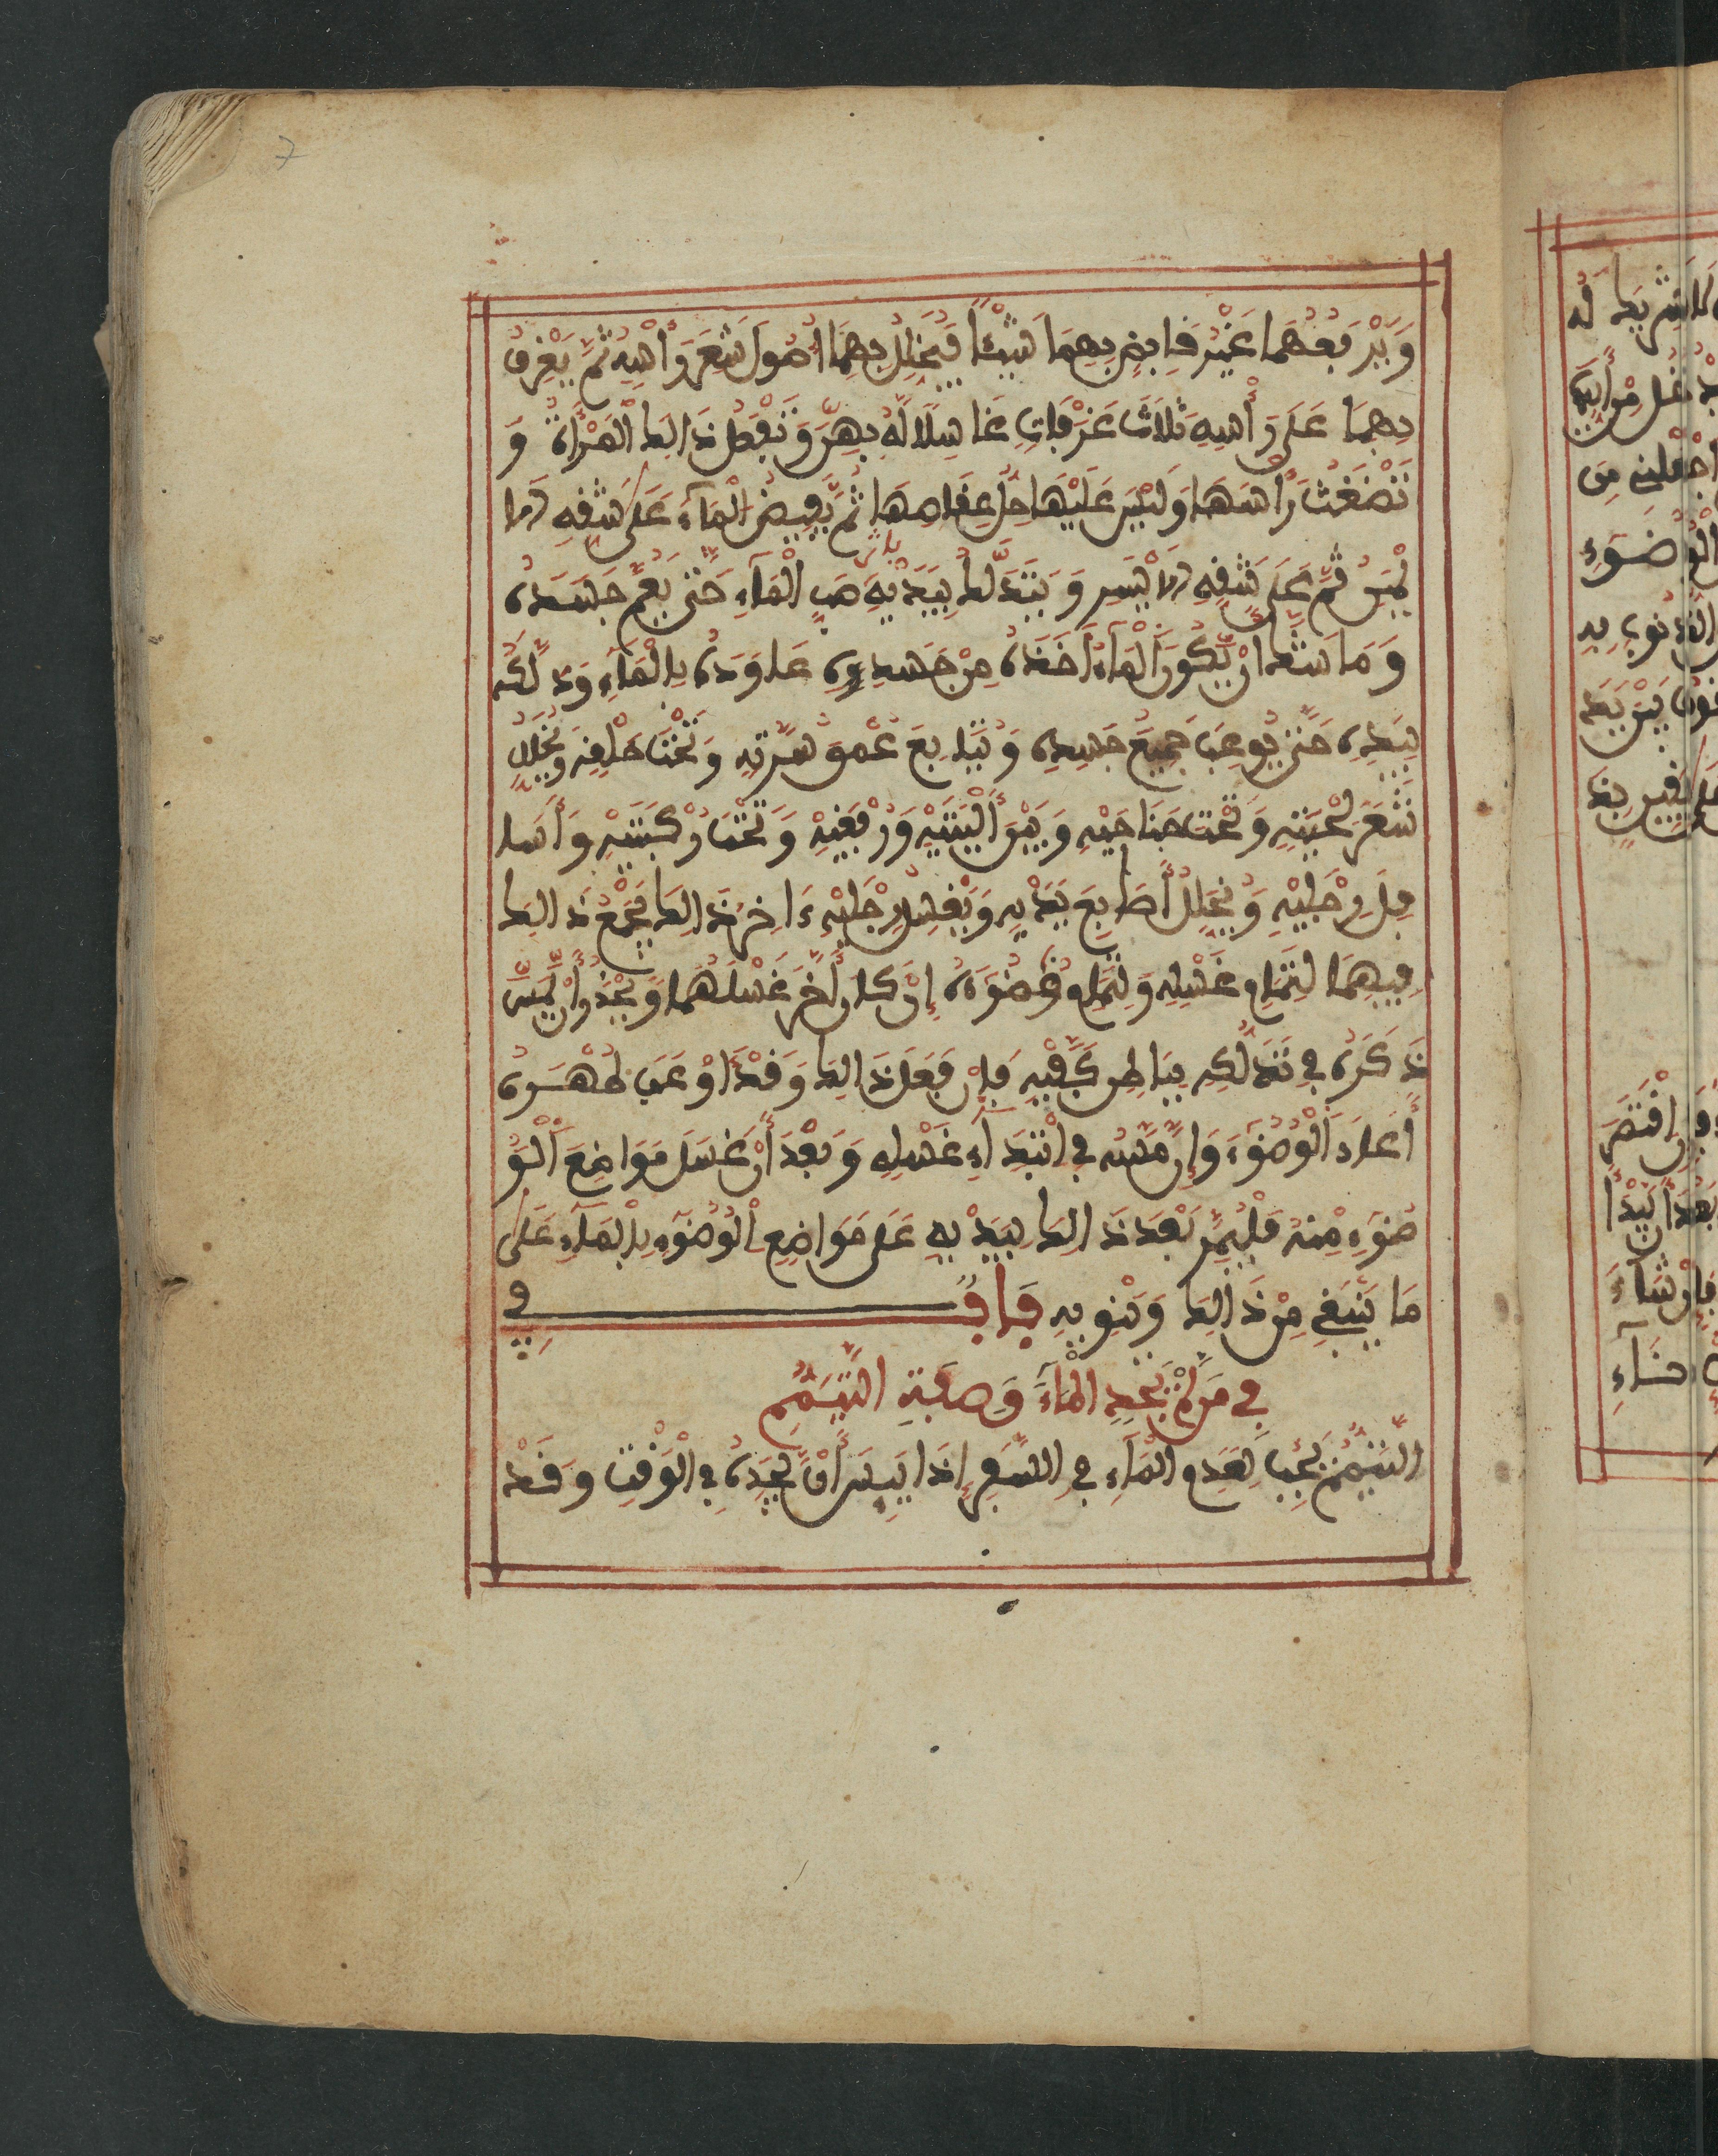 7
وَيَرْفَعُهُمَا غَيْرَ قَابِضٍ بِهِمَا شَيْئًا فَيُخَلِّلُ بِهِمَا أُصُولَ شَعَرِ رَأْسِهِ ثُمَّ يَغْرِفُ
بِهِمَا عَلَى رَأْسِهِ ثَلَاثَ غَرَفَاتٍ غَاسِلًا لَّهُ بِهِنَّ وَتَفْعَلُ ذَالِكَ الْمَرْأَةُ وَ
تَضْغَثُ رَأْسَهَا وَلَيْسَ عَلَيْهَا حَلُّ عِقَاصِهَا ثُمَّ يُفِيضُ الْمَاءَ عَلَى شِقِّهِ الَا
يْمَنِ ثُمَّ عَلَى شِقِّهِ الَايْسَرِ وَيَتَدَلَّكُ بِيَدَيْهِ بِإِثْرِ صَبِّ الْمَاءِ حَتَّى يَعُمَّ جَسَدَهُ
وَمَا شَكَّ أَنْ يَّكُونَ الْمَاءُ أَخَذَهُ مِنْ جَسَدِهِ عَاوَدَهُ بِالْمَاءِ وَدَلَكَهُ
بِيَدِهِ حَتَّى يُوعِبَ جَمِيعَ جَسَدِهِ وَيُتَابِعَ عُمْقَ سُرَّتِهِ وَتَحْتَ حَلْقِهِ وَيُخَلِّلُ
شَعَرَ لِحْيَتِهِ وَتَحْتَ جَنَاحَيْهِ وَبَيْنَ أَلْيَتَيْهِ وَرُفْغَيْهِ وَتَحْتَ رُكْبَتَيْهِ وَأَسَا
فِلَ رِجْلَيْهِ وَيُخَلِّلُ أَصَابِعَ يَدَيْهِ وَيَغْسِلُ رِجْلَيْهِ ءَاخِرَ ذَالِكَ يَجْمَعُ ذَالِكَ
فِيهِمَا لِتَمَامِ غَسْلِهِ وَلِتَمَامِ وُضُوئِهِ إِنْ كَانَ أَخَّرَ غَسْلَهُمَا وَيَحْذَرُ أَنْ يَّمَسَّ
ذَكَرَهُ فِي تَدَلُّكِهِ بِبَاطِنِ كَفَّيْهِ فَإِنْ فَعَلَ ذَالِكَ وَقَدْ أَوْعَبَ طُهْرَهُ
أَعَادَ الْوُضُوءَ وَإِنْ مَّسَّهُ فِي ابْتِدَاءِ غَسْلِهِ وَبَعْدَ أَنْ غَسَلَ مَوَاضِعَ الْوُ
ضُوءِ مِنْهُ فَلْيُمِرَّ بَعْدَ ذَالِكَ بِيَدَيْهِ عَلَى مَوَاضِعِ الْوُضُوءِ بِالْمَاءِ عَلَى
مَا يَنْبَغِي مِنْ ذَالِكَ وَيَنْوِيهِ بَابٌ فِي
فِي مَن لَّمْ يَجِدِ الْمَاءَ وَصِفَةِ التَّيَمُّمِ
التَّيَمُّمُ يَجِبُ لِعَدَمِ الْمَاءِ فِي السَّفَرِ إِذَا يَئِسَ أَنْ يَّجِدَهُ فِي الْوَقْتِ وَقَدْ